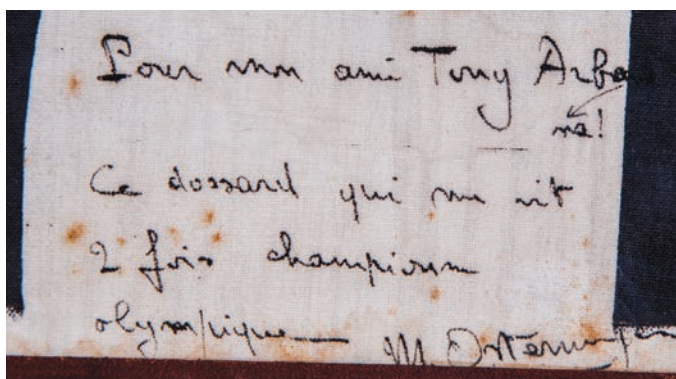 Pour mon ami Tony Arba
na!
Ce dossard qui me vit
2 fois championne
olympique
M. Ostermeyer